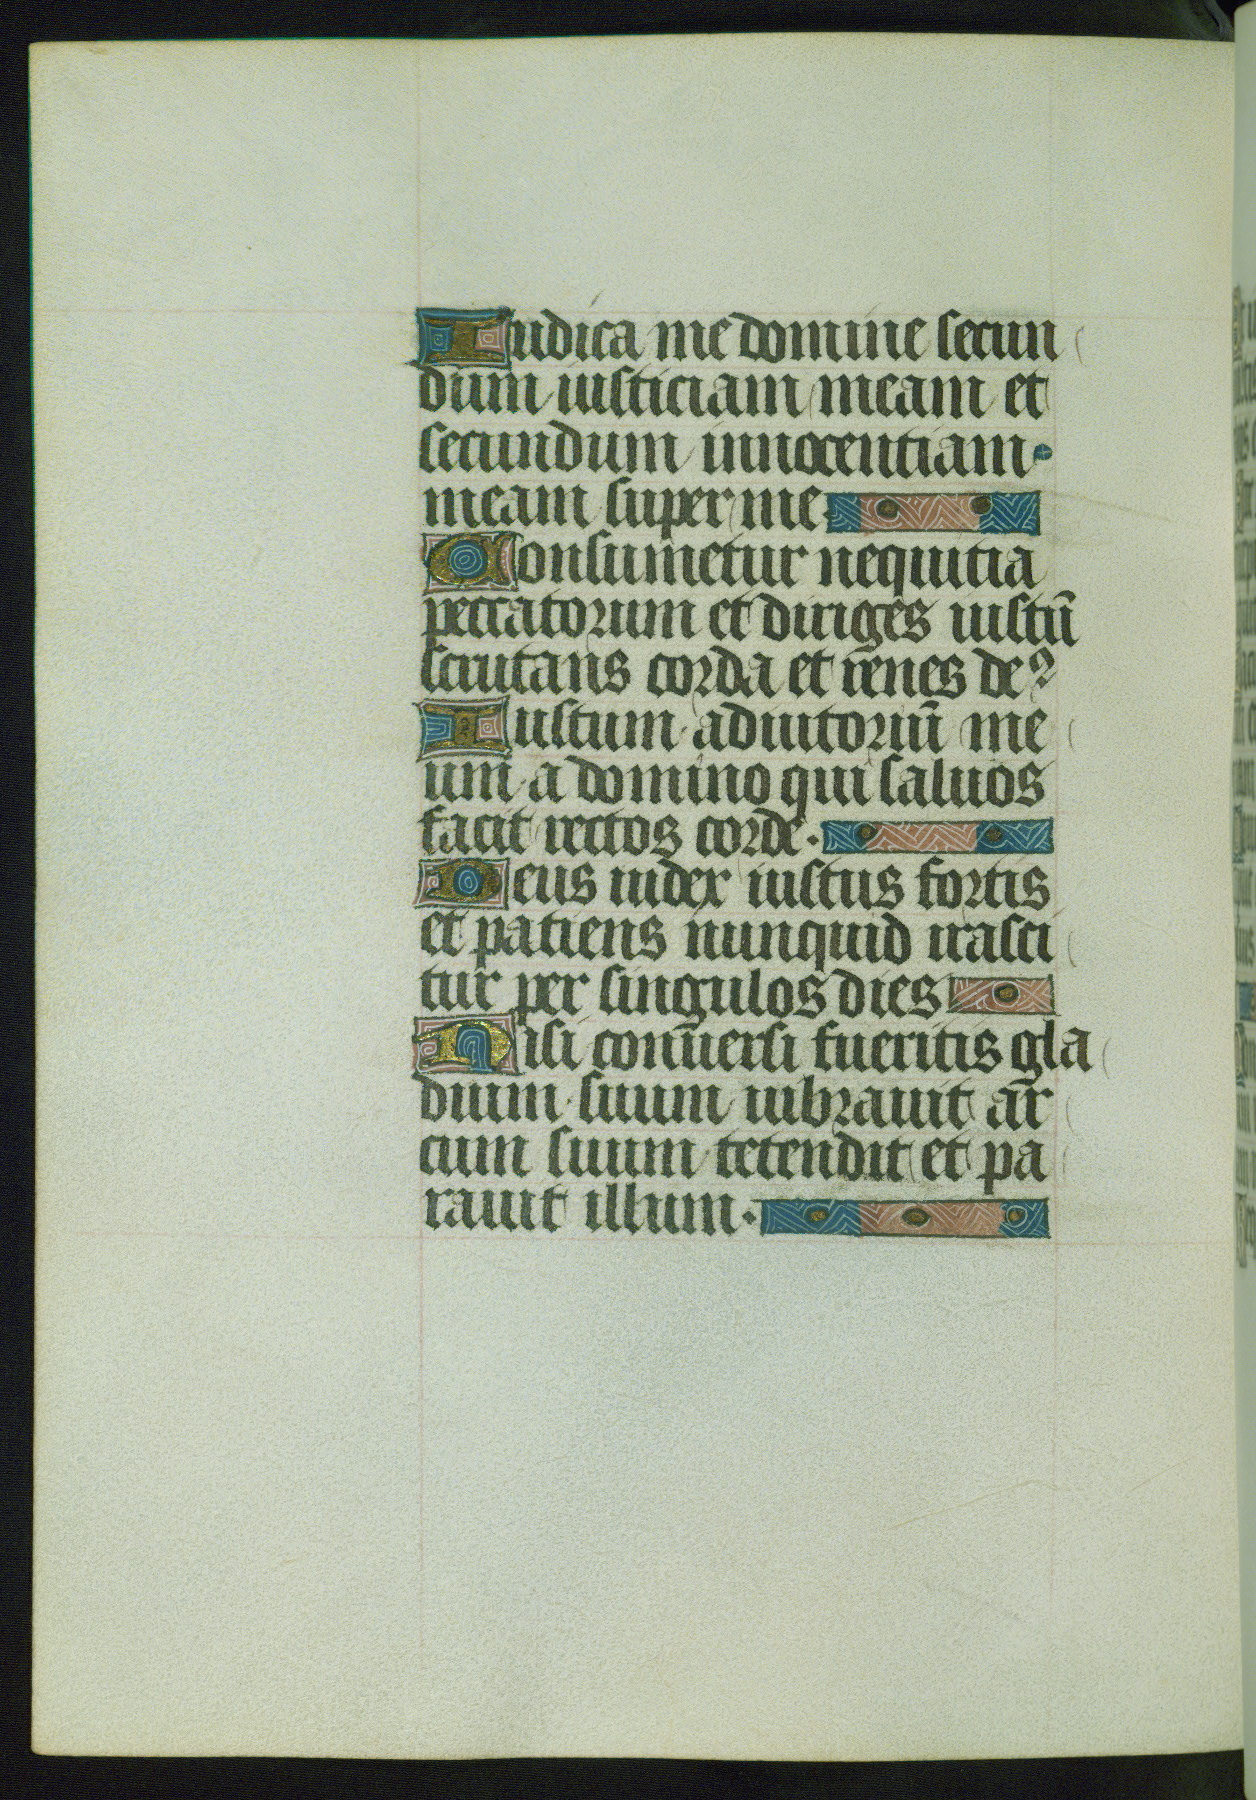 Iudica me domine secun
dum iusticiam meam et
secundum innocentiam
meam super me.
Consumetur nequitia
peccatorum et diriges iustū
scrutans corda et renes deꝰ
Iustum adiutoriū me
um a domino qui saluos
facit rectos corde.
Deus iudex iustus fortis
et patiens nunquid irasci
tur per singulos dies
Nisi conuersi fueritis gla
dium suum uibrauit ar
cum suum tetendit et pa
rauit illum.